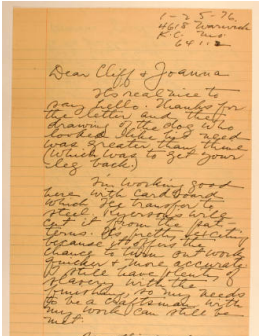 1-25-76,
4618 Warwick
K.C. Mo.
64112
Dear Cliff & Joanna
It's real nice to
say hello. Thanks for
the letter and the
drawing of the dog who
looked like his need
was greater than thine
(which was to get your
leg back.)
I'm working good
here with cardboard
which I transfer to
steel. Ryersons will
cut it from the pat-
terns. It's pretty exciting
because it offers the
chance to turn out work
quicker & more accurately
I still have plenty of
slavery with the
finishing so my needs
to be a craftsman with
my work can still be
met.